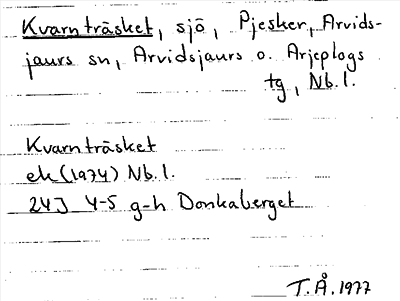 Kvarnträsket, sjö, Pjesker, Arvids-
jaurs sn, Arvidsjaurs o. Arjeplogs
tg, Nb.l.
Kvarnträsket
ek (1974) Nb.l.
24J 4-5 g-h Donkaberget
T.Å. 1977